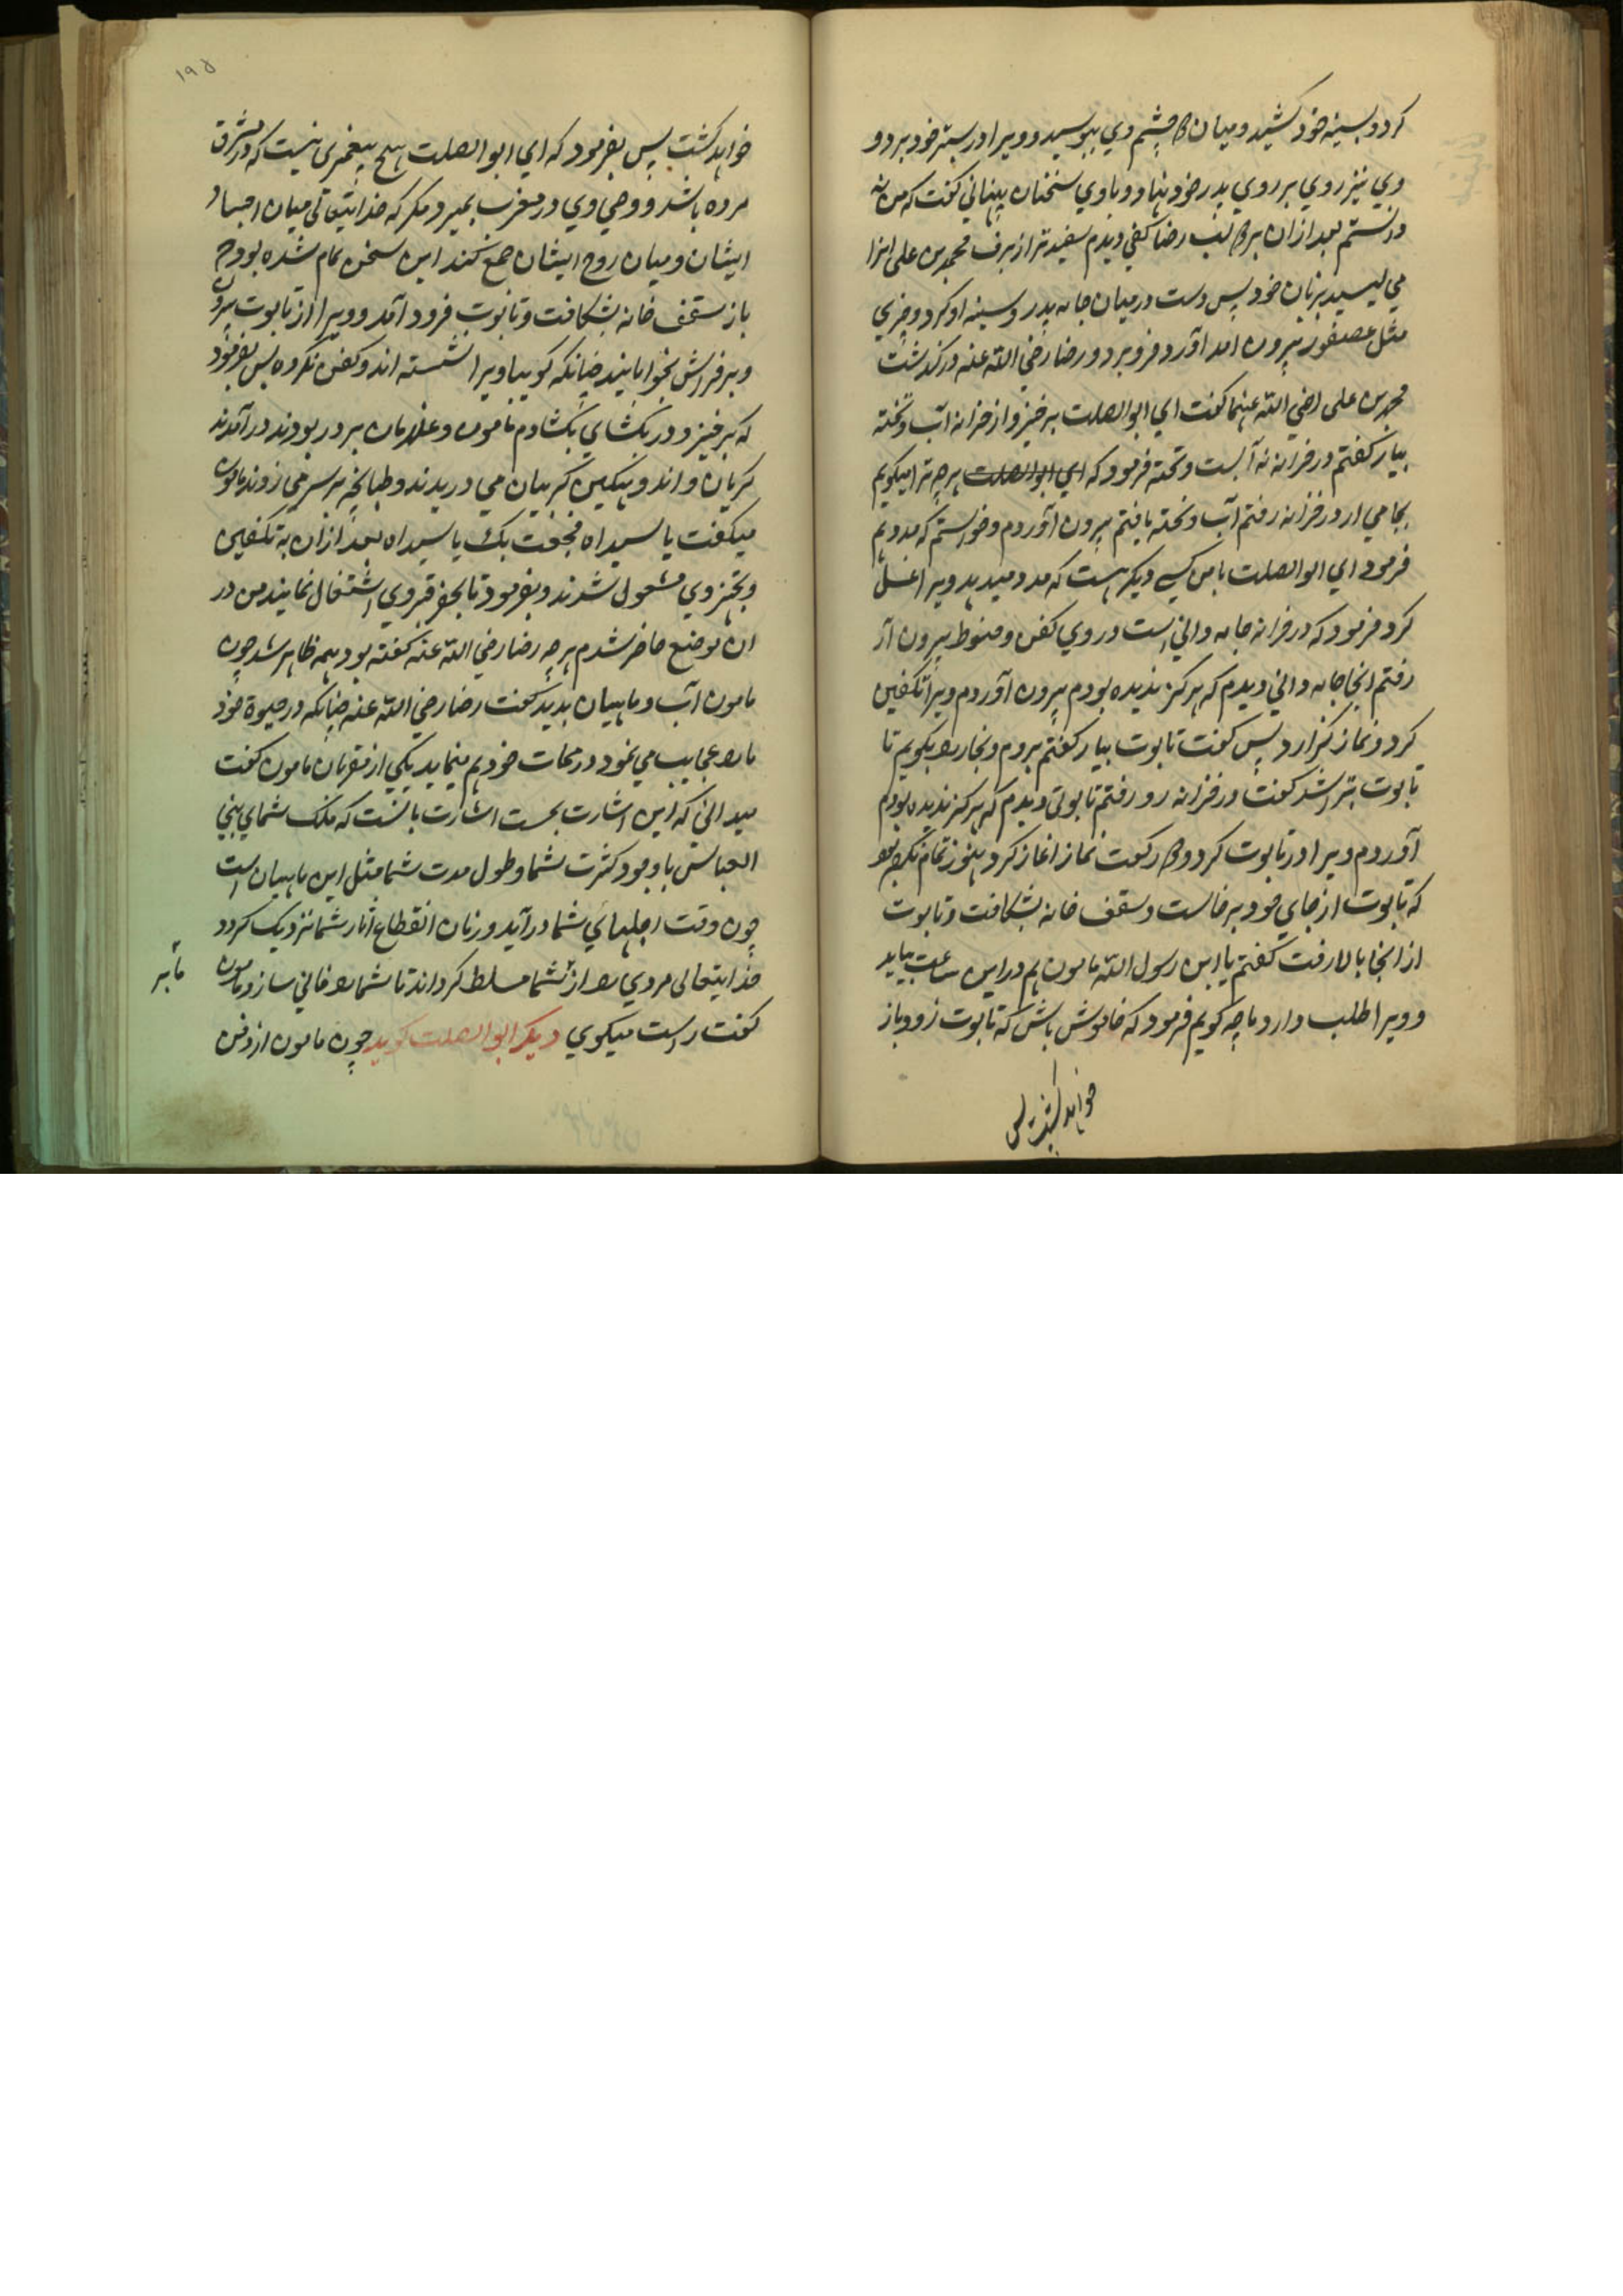 کرد و بسینه خود کشید و میان دو چشم وی ببوسید و ویرا در بستر خود برد و
وی نیز روی بر روی پدر خود نهاد و با وی سخنان پنهانی گفت که من نه
دانستم بعد از آن بر دو لب رضا کفی دیدم سفیدتر از برف محمد بن علی انرا
می لیسید بزبان خود پس دست در میان جامه پدر و سینه او کرد و چیزی
مثل عصفور بیرون آورد و فرو برد و رضا رضی الله عنه درگذشت
محمد بن علی رضی الله عنهما گفت ای ابوالصلت برخیز و از خزانه آب و تخته
بیار گفتم در خزانه نه آبست و تخته فرمود که ای ابوالصلت هر چه ترا میگویم
بجا می ار در خزانه رفتم آب و تخته یافتم بیرون آوردم و خواستم که مدد دهم
فرمود ای ابوالصلت با من کسی دیگر هست که مدد میدهد ویرا غسل
کرد فرمود که در خزانه جامه دانی است در وی کفن و حنوط بیرون آر
رفتم انجا جامه دانی دیدم که هرگز ندیده بودم بیرون آوردم ویرا تکفین
کرد و نماز گزارد پس گفت تابوت بیار گفتم بروم و نجار را بگویم تا
تابوت بتراشد گفت در خزانه رو رفتم تابوتی دیدم که هرگز ندیده بودم
آوردم ویرا در تابوت کرد و دو رکعت نماز اغاز کرد هنوز تمام نکرده بود
که تابوت از جای خود برخاست و سقف خانه بشکافت و تابوت
از انجا بالا رفت گفتم یا ابن رسول الله مامون هم در این ساعت بیاید
و ویرا طلب دارد ما چه گویم فرمود که خاموش باش که تابوت زود باز
خواهد گشت پس
۱۹۵
خواهد گشت پس بفرمود که ای ابوالصلت هیچ پیغمبری نیست که در مشرق
مرده باشد و وصی وی در مغرب بمیرد مگر که خدایتعالی میان اجساد
ایشان و میان روح ایشان جمع کند این سخن تمام نشده بود که
باز سقف خانه بشکافت و تابوت فرود آمد و ویرا از تابوت بیرون
و بر فراش بخوابانید چنانکه گوییا ویرا نشسته اند و کفن نکرده پس بفرمود
که برخیز و در بگشای بگشادم مامون و غلامان بر در بودند درآمدند
گریان و اندوهگین گریبان می دریدند و طپانچه بر سر می زدند مامون
میگفت یا سیداه فجعت بک یا سیداه بعد از ان به تکفین
و تجهیز وی مشغول شدند و بفرمود تا بحفر قبر وی اشتغال نمایند من در
ان موضع حاضر شدم هر چه رضا رضی الله عنه گفته بود همه ظاهر شد چون
مامون آب و ماهیان بدید گفت رضا رضی الله عنه چنانکه در حیوة خود
ما را عجایب می نمود در ممات خود هم مینماید یکی از مقربان مامون گفت
میدانی که این اشارت بچیست اشارت بانست که ملک شما ای بنی
العباس با وجود کثرت شما و طول مدت شما مثل این ماهیان است
چون وقت اجلهای شما درآید و زمان انقطاع اثار شما نزدیک گردد
خدایتعالی مردی را از شما مسلط گرداند تا شما را فانی سازد مامون
گفت راست میگوی دیگر ابوالصلت گوید چون مامون از دفن